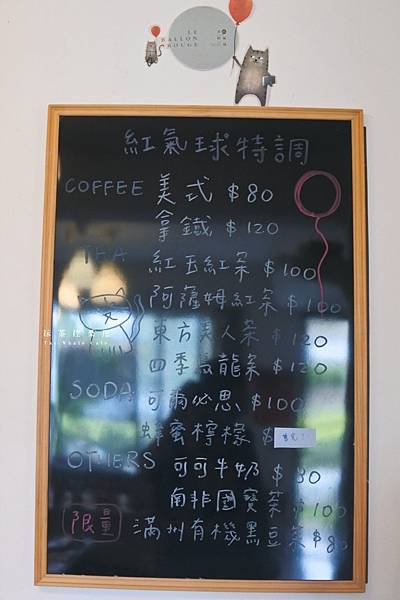 LE
BALLON
ROUGE
紅氣球特調
COFFEE 美式 $80
拿鐵 $120
TEA
紅玉紅茶 $100
阿薩姆紅茶 $100
東方美人茶 $120
四季烏龍茶 $120
SODA 可爾必思 $100
蜂蜜檸檬 $ 售完!
OTHERS 可可牛奶 $80
南非國寶茶 $100
限量 滿州有機黑豆茶 $80